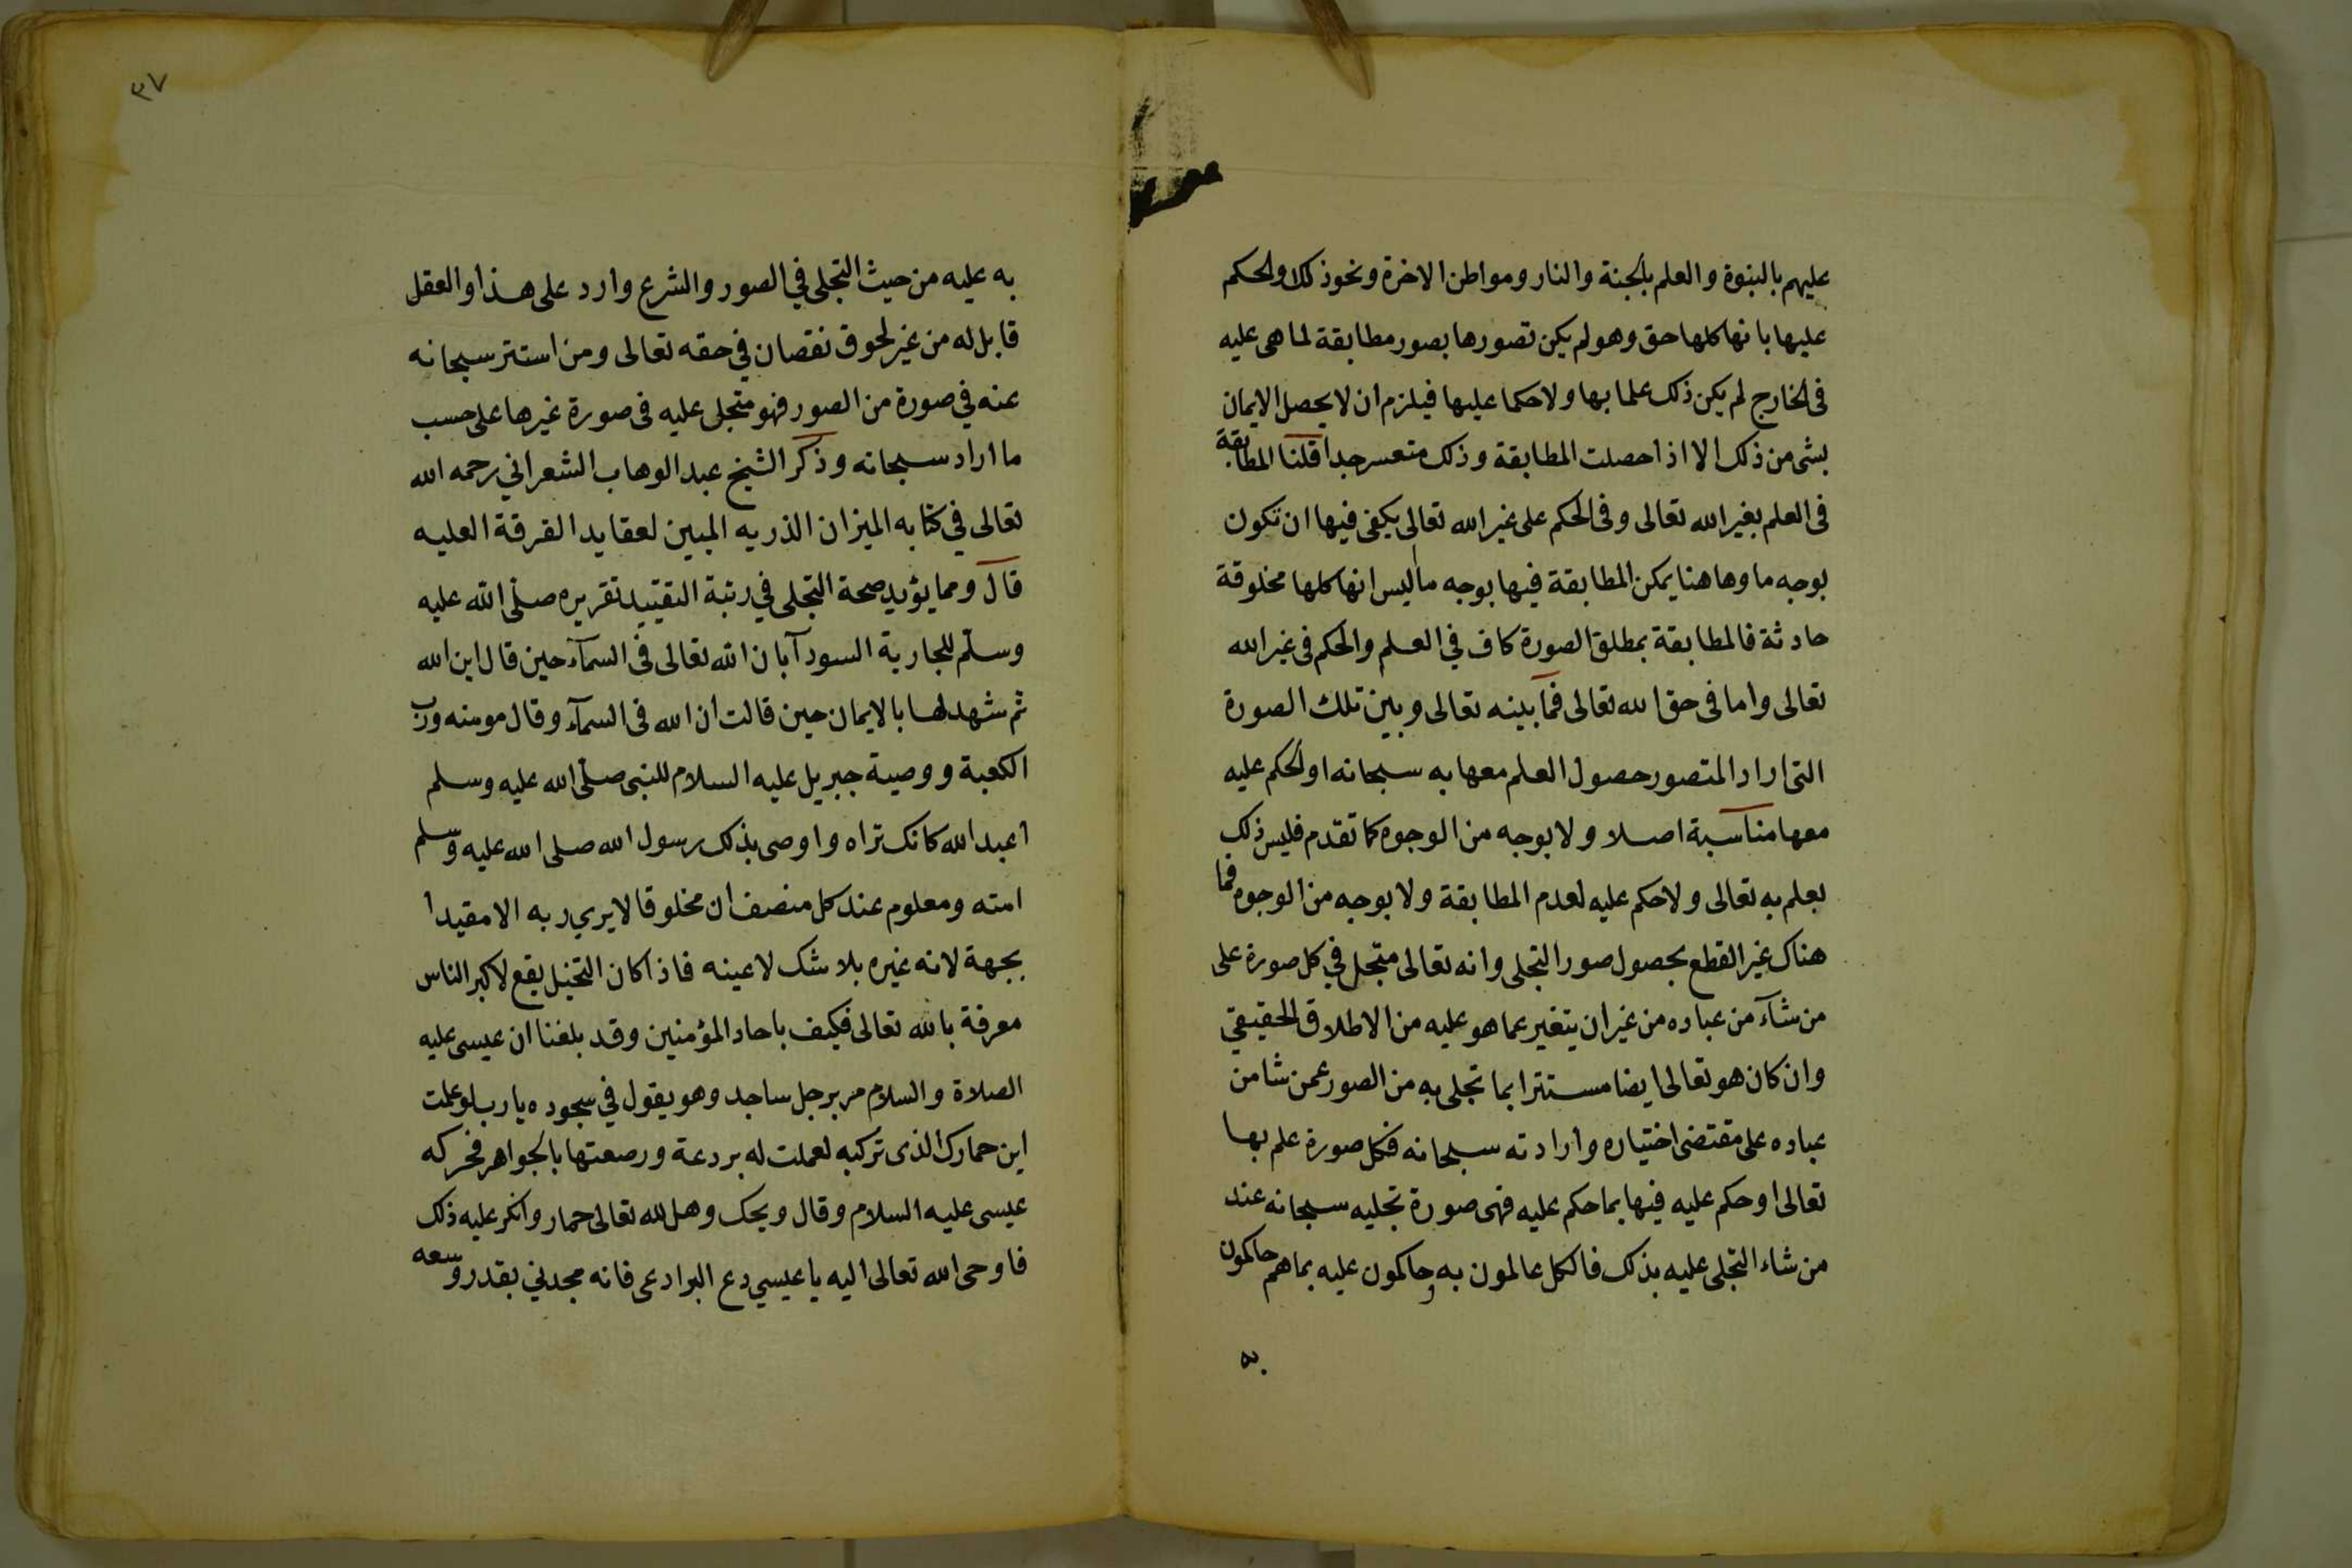 عليهم بالنبوة والعلم بالجنة والنار ومواطن الاخرة ونحو ذلك والحكم
عليها بانها كلها حق وهو لم يكن تصورها بصور مطابقة لما هى عليه
فى الخارج لم يكن ذلك علما بها ولا حكما عليها فيلزم ان لا يحصل الايمان
بشى من ذلك الا اذا حصلت المطابقة وذلك متعسر جدا قلنا المطابقة
فى العلم بغير الله تعالى وفى الحكم على غير الله تعالى يكفى فيها ان تكون
بوجه ما وهاهنا يمكن المطابقة فيها بوجه ما اليس انها كلها مخلوقة
حادثة فالمطابقة بمطلق الصورة كاف في العلم والحكم فى غير الله
تعالى واما فى حق الله تعالى فما بينه تعالى وبين تلك الصورة
التى اراد المتصور حصول العلم معها به سبحانه او الحكم عليه
معها مناسبة اصلا ولا بوجه من الوجوه كما تقدم فليس ذلك
بعلم به تعالى ولا حكم عليه لعدم المطابقة ولا بوجه من الوجوه فما
هناك غير القطع بحصول صور التجلى وانه تعالى متجل في كل صورة على
من شآء من عباده من غير ان يتغير عما هو عليه من الاطلاق الحقيقي
وان كان هو تعالى ايضا مستترا بما تجلى به من الصور عمن شا من
عباده على مقتضى اختياره وارادته سبحانه فكل صورة علم بها
تعالى او حكم عليه فيها بما حكم عليه فهى صورة تجليه سبحانه عند
من شاء التجلى عليه بذلك فالكل عالمون به وحاكمون عليه بما هم حاكمون
به
٣٧
به عليه من حيث التجلى في الصور والشرع وارد على هذا والعقل
قابل له من غير لحوق نقصان في حقه تعالى ومن استتر سبحانه
عنه في صورة من الصور فهو متجلى عليه فى صورة غيرها على حسب
ما اراد سبحانه وذكر الشيخ عبد الوهاب الشعراني رحمه الله
تعالى في كتابه الميزان الذريه المبين لعقايد الفرقة العليه
قال ومما يؤيد صحة التجلى في رتبة التقييد تقريره صلى الله عليه
وسلم للجارية السودآ بان الله تعالى فى السمآء حين قال اين الله
ثم شهد لها بالايمان حين قالت ان الله فى السمآء وقال مومنه ورب
الكعبة ووصية جبريل عليه السلام للنبى صلى الله عليه وسلم
اعبد الله كانك تراه واوصى بذلك رسول الله صلى الله عليه وسلم
امته ومعلوم عند كل منصف ان مخلوقا لا يري ربه الا مقيدا
بجهة لانه غيره بلا شك لا عينه فاذا كان التخيل يقع لاكبر الناس
معرفة بالله تعالى فكيف باحاد المؤمنين وقد بلغنا ان عيسى عليه
الصلاة والسلام مر برجل ساجد وهو يقول في سجوده يا رب لو علمت
اين حمارك الذى تركبه لعملت له بردعة ورصعتها بالجواهر فحركه
عيسى عليه السلام وقال ويحك وهل لله تعالى حمار وانكر عليه ذلك
فاوحى الله تعالى اليه يا عيسي دع البرادعى فانه مجدني بقدر وسعه